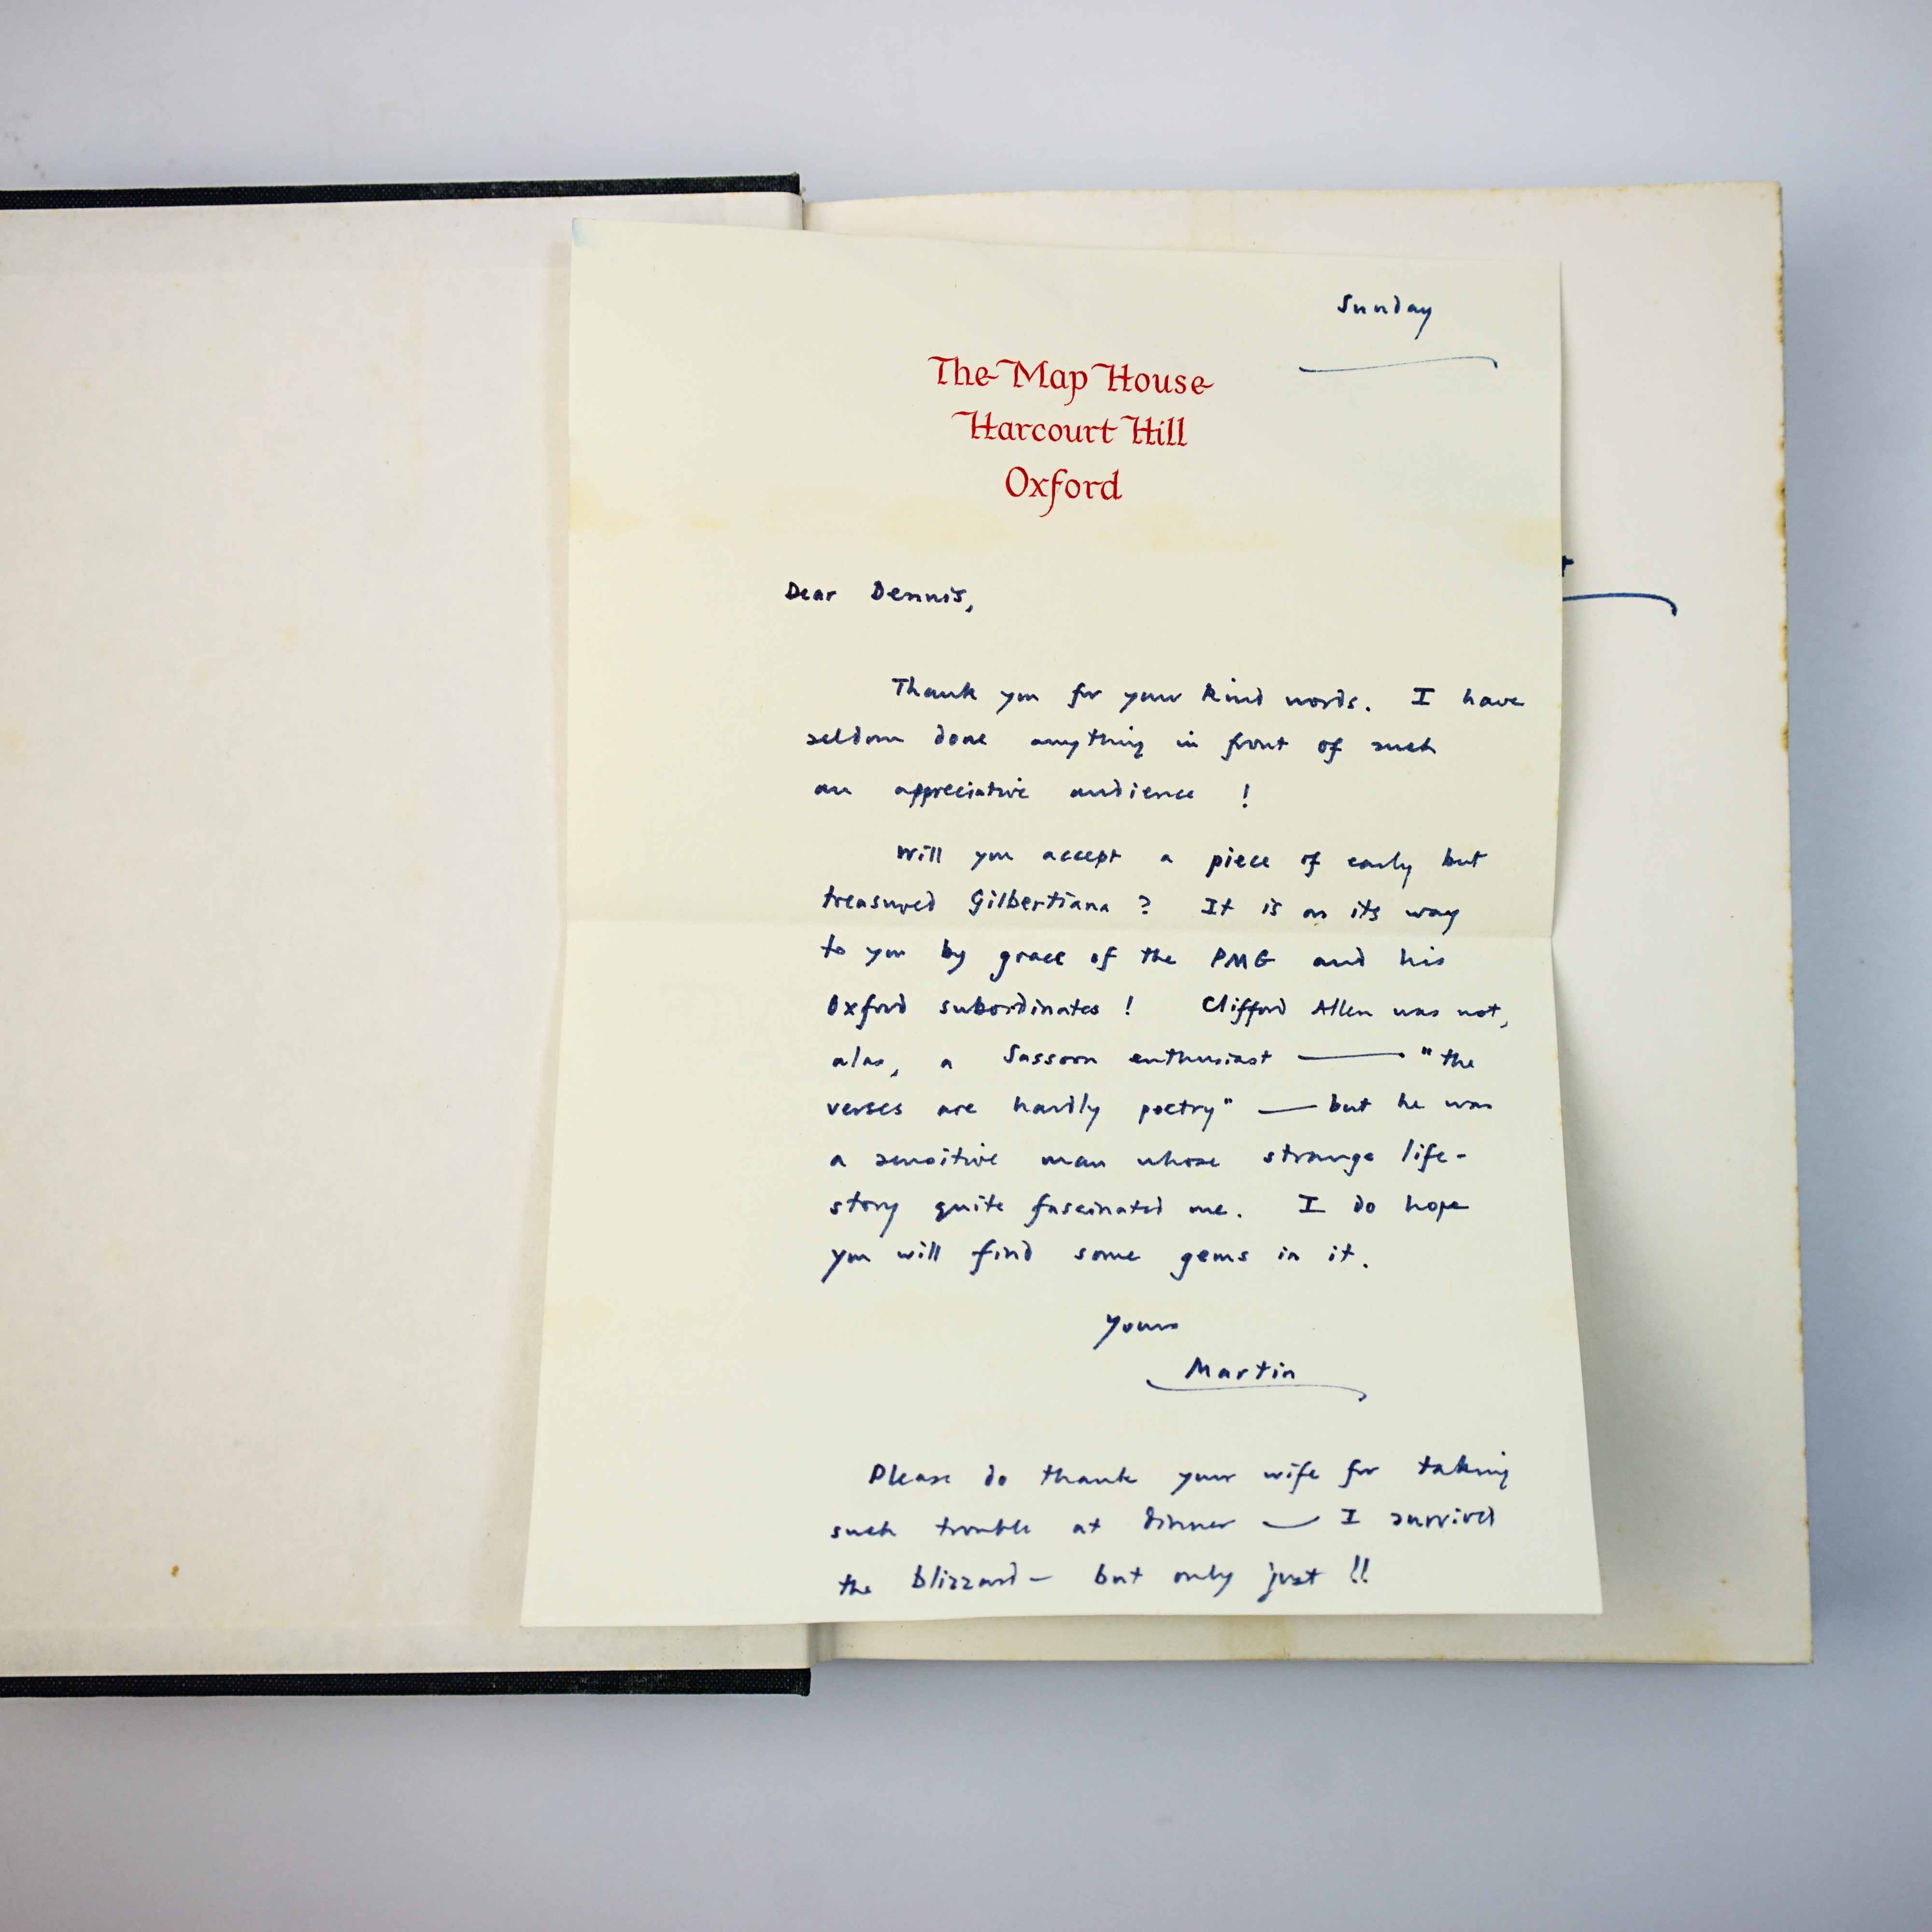 Sunday
The Map House
Harcourt Hill
Oxford
Dear Dennis,
Thank you for your kind words. I have
seldom done anything in front of such
an appreciative audience !
Will you accept a piece of early but
treasured Gilbertiana ? It is on its way
to you by grace of the PMG and his
Oxford subordinates ! Clifford Allen was not,
alas, a Sassoon enthusiast — "the
verses are hardly poetry" — but he was
a sensitive man whose strange life-
story quite fascinated me. I do hope
you will find some gems in it.
Yours
Martin
Please do thank your wife for taking
such trouble at dinner — I survived
the blizzard — but only just !!